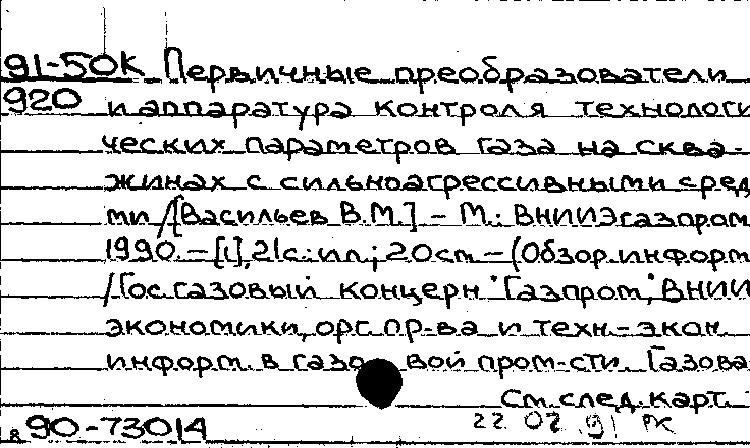 91-50К Первичные преобразователи
920 и аппаратура контроля технологи
ческих параметров газа на сква-
жинах с сильноагрессивными сред
ми /[Васильев В.М.] - М.: ВНИИЭгазпром
1990. - [1], 21с.: ил.; 20см - (Обзор. информ
/Гос. газовый концерн "Газпром", ВНИИ
экономики, орг. пр-ва и техн.-экон
информ. в газовой пром-сти. Газова
См. след. карт.
90-73014 22 02 91 РК